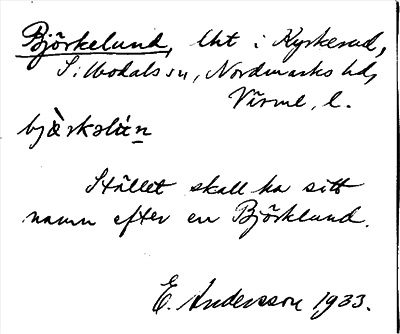 Björkelund, lht i Kyrkerud,
Silbodals sn, Nordmarks hd,
Värml. l.
bjærkəlún
Stället skall ha sitt
namn efter en Björklund.
E. Andersson 1933.